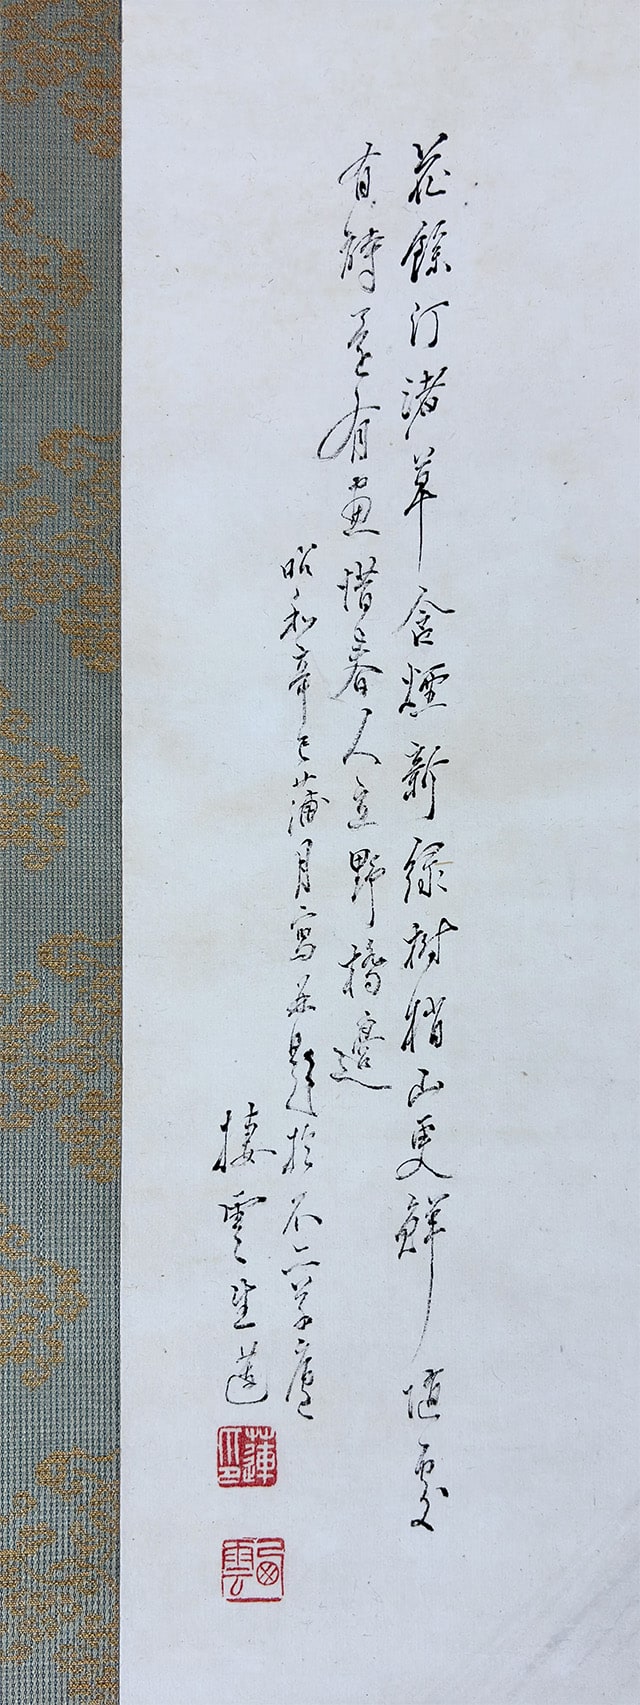 花餘汀渚草含煙新綠樹梢山更鮮隨處
有詩還有畫惜春人立野橋邊
昭和辛巳蒲月寫并題於不二草廬
棲雲生蓮
蓮印
雲